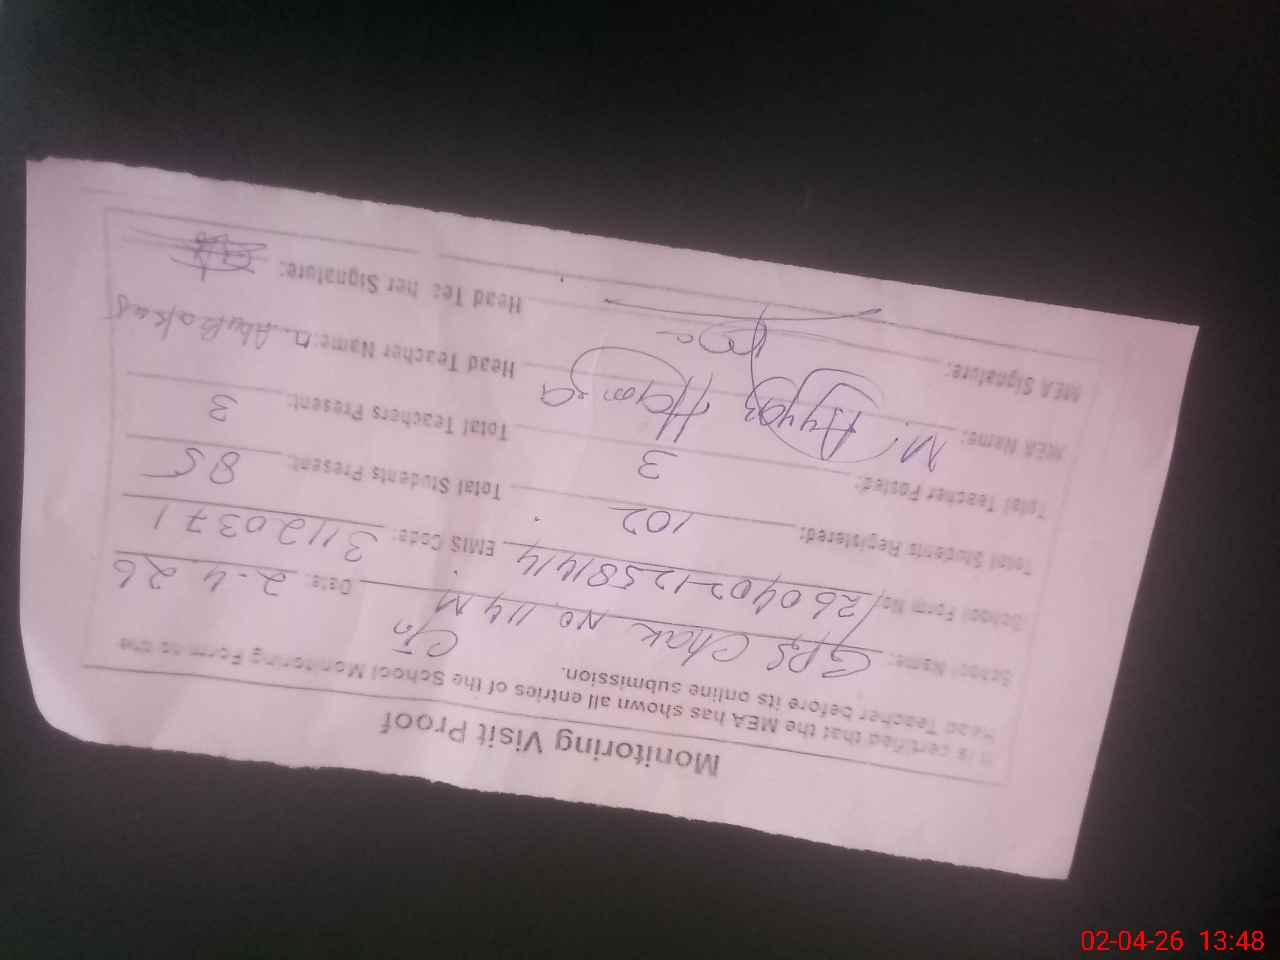 Monitoring Visit Proof
It is certified that the MEA has shown all entries of the School Monitoring Form to the
Head Teacher before its online submission.
School Name: GPS Chak No, 114 M Date: 2-4-26
School Form No. 260402-12581414 EMIS Code: 31120371
Total Students Registered: 102 Total Students Present: 85
Total Teacher Posted: 3 Total Teachers Present: 3
MEA Name: M. Ayyaz Head Teacher Name: M. Abu Bakar
MEA Signature: Head Teacher Signature:
02-04-26 13:48